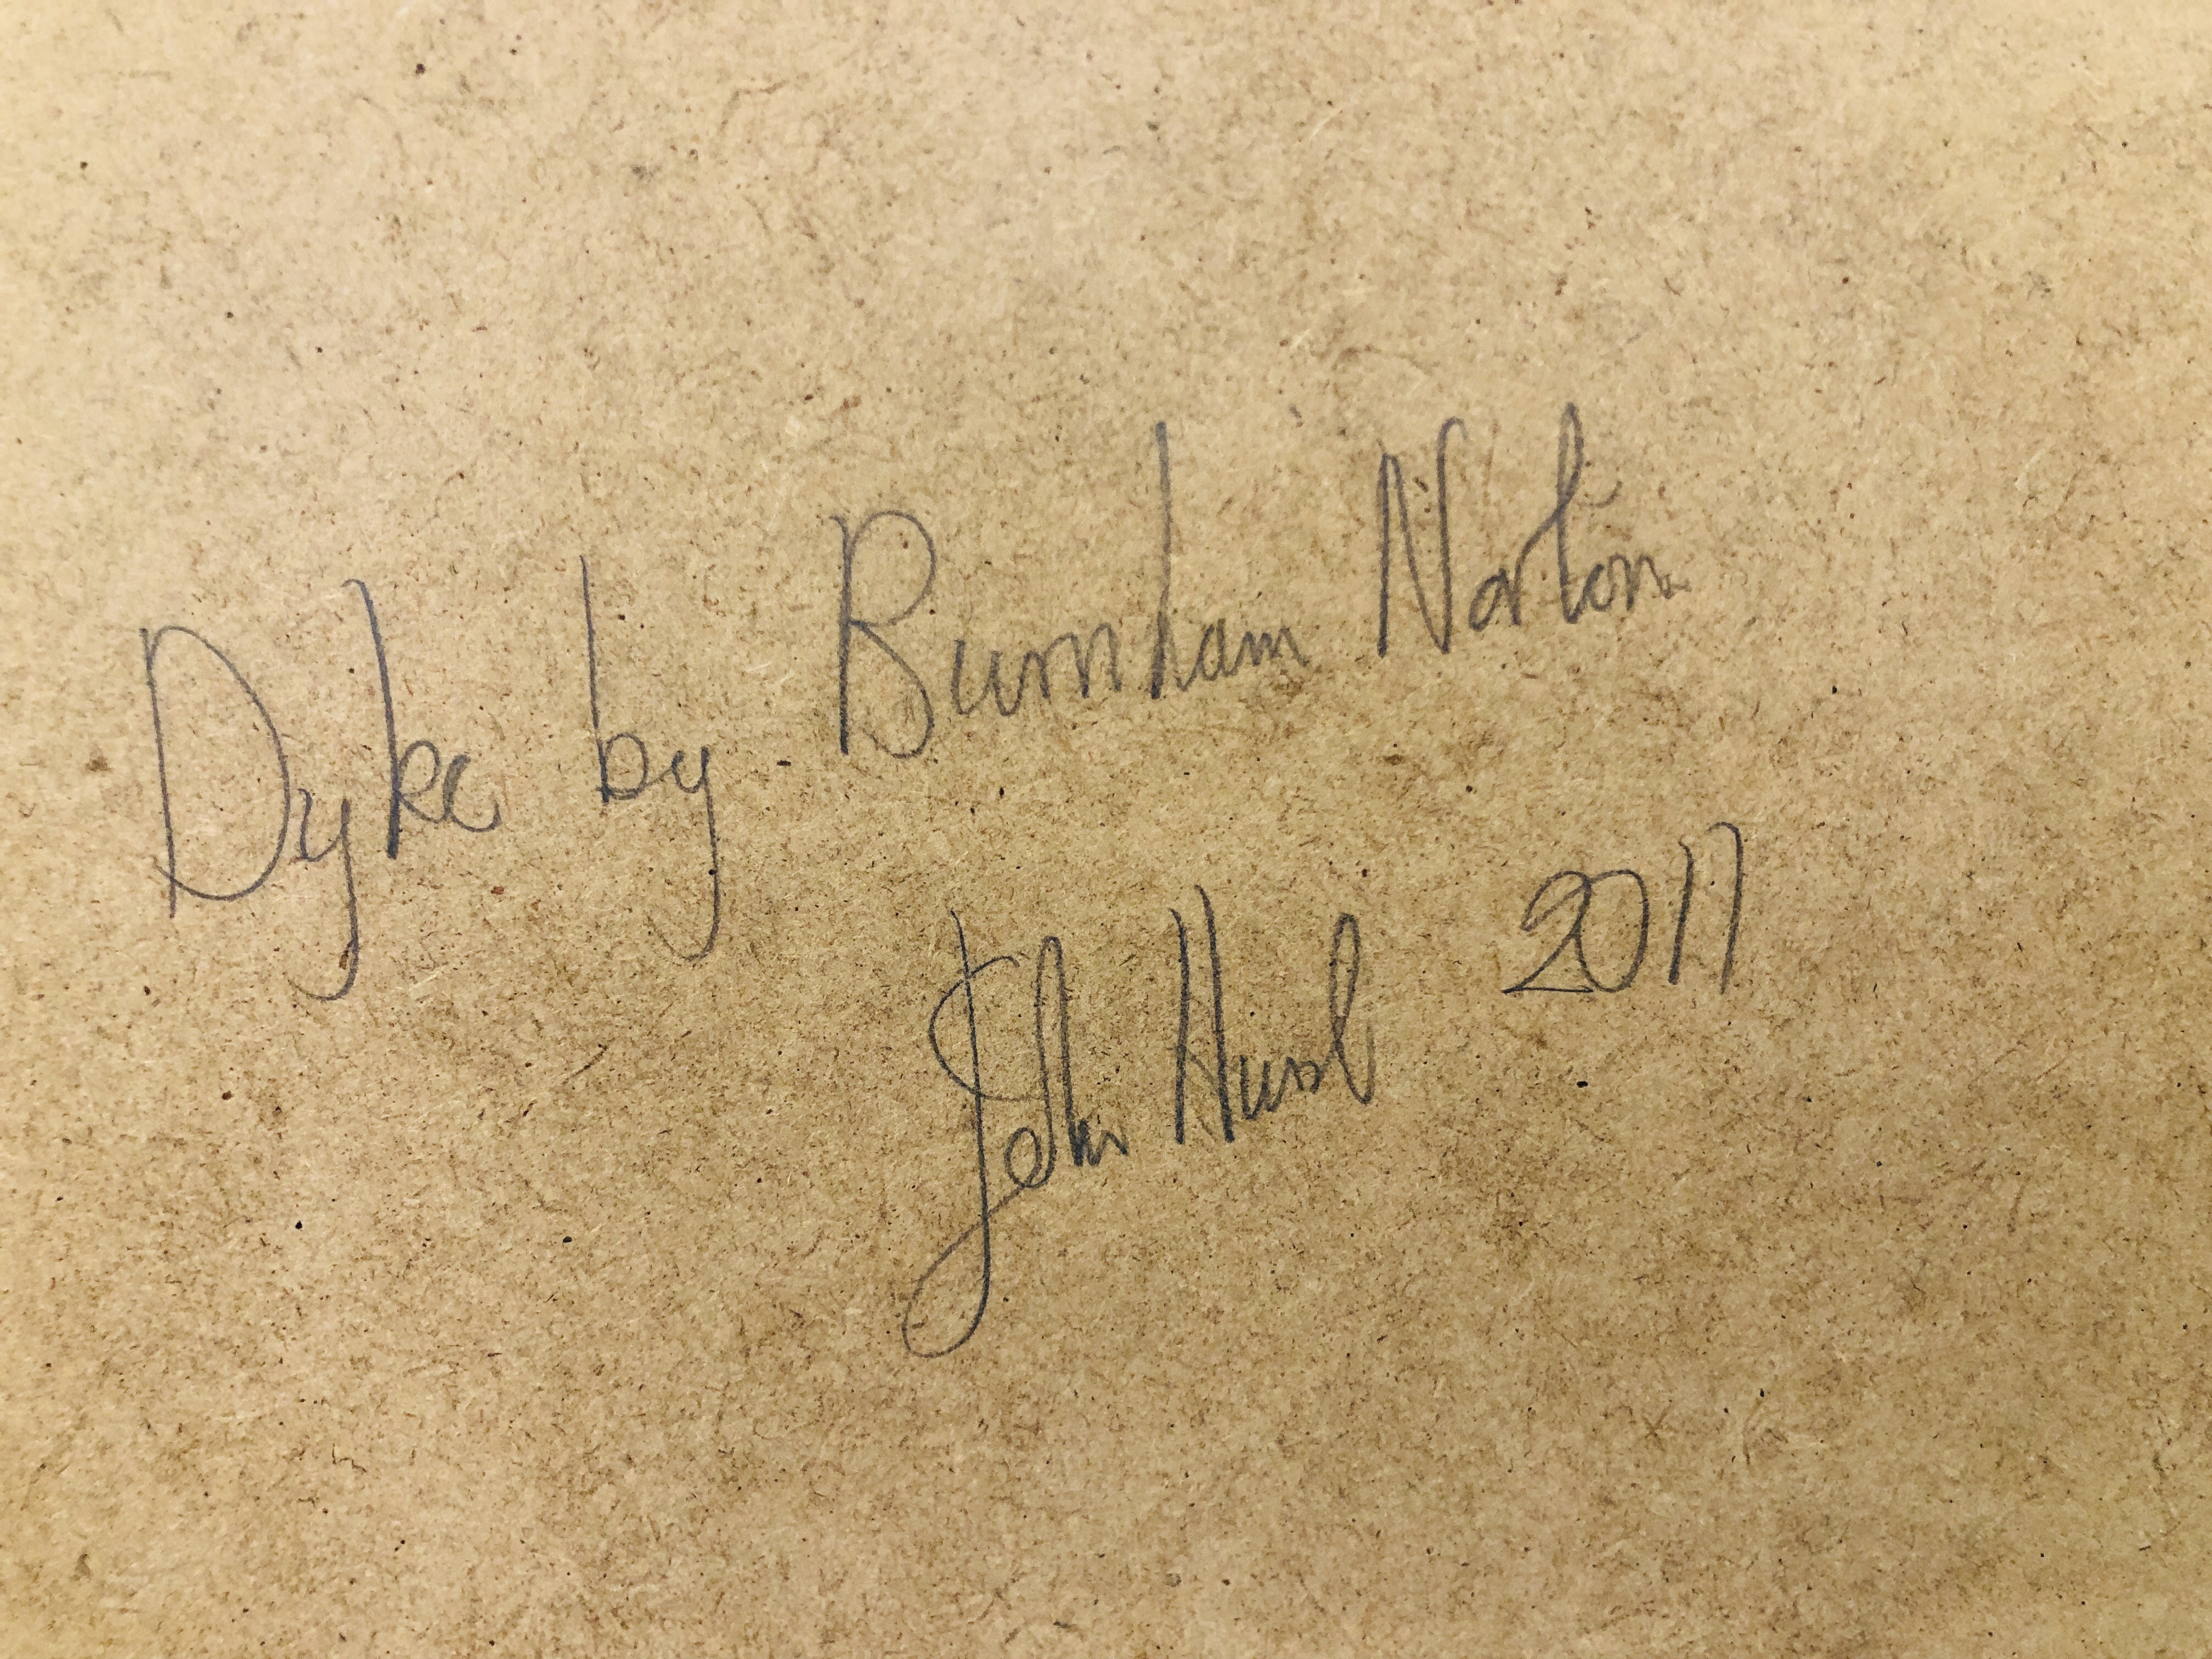 Dyke by Burnham Norton
John Hurst 2017